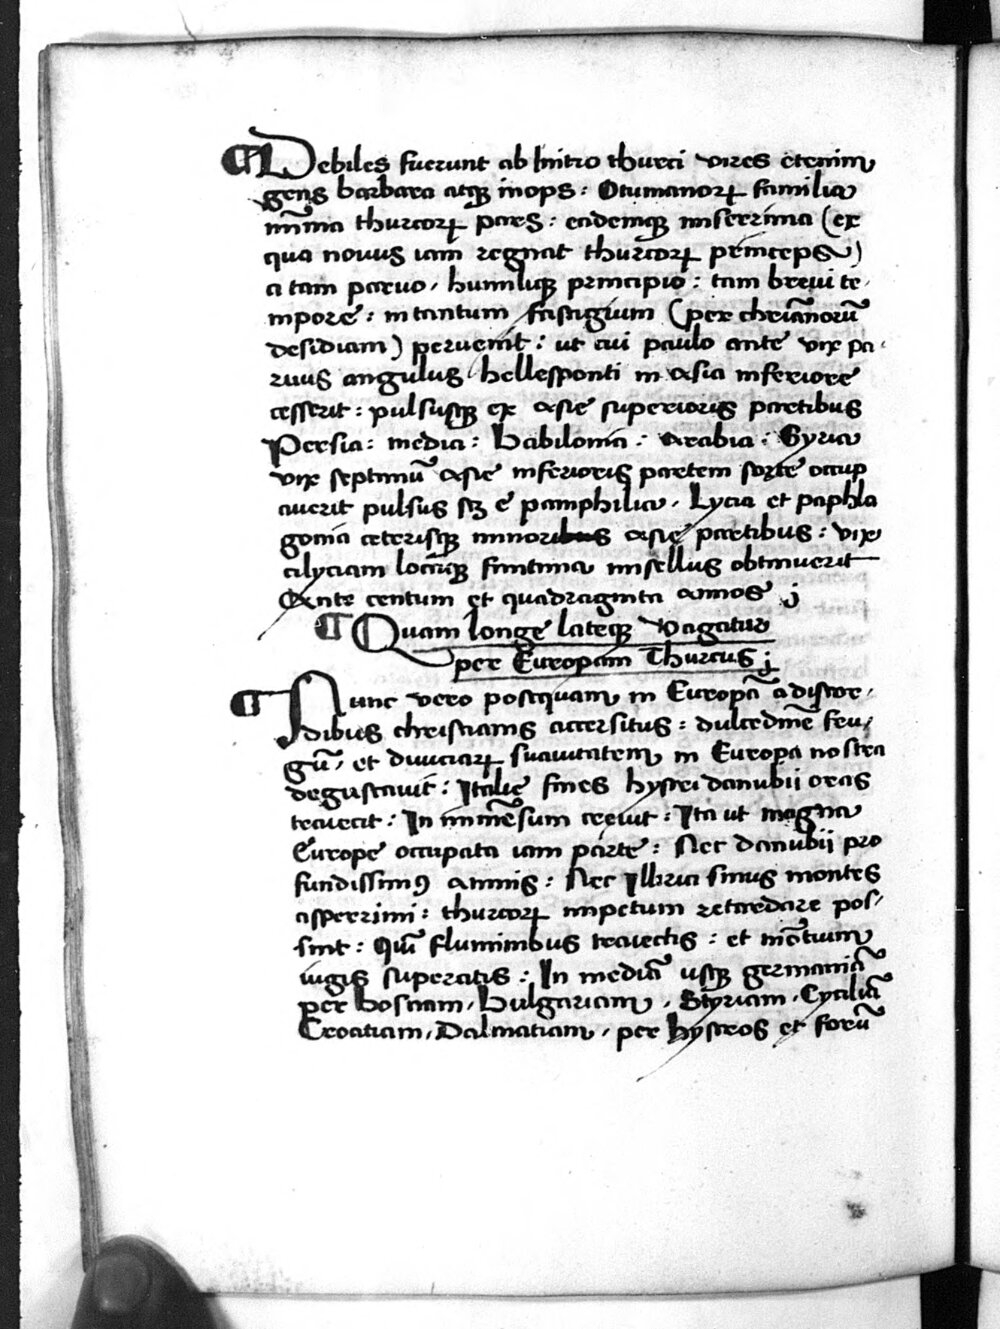 ¶ Debiles fuerunt ab Initio thurci vires etenim
gens barbara atqꝫ inops : Otumanorꝝ familia
mĩma thurcorꝝ pars : eademqꝫ miserrima (ex
qua nouus iam regnat thurcorꝝ princeps)
a tam paruo, humiliqꝫ principio : tam breui te-
mpore : in tantum fastigium (per chrĩanorũ
desidiam) peruenit : ut cui paulo ante vix pa-
ruus angulus hellesponti in asia inferiore
cesserit : pulsusqꝫ ex asie superioris partibus
Persia : media : babilonia : arabia : Syria
vix septimũ asie inferioris partem sorte occup
auerit pulsus sꝫ e pamphilia, Lycia et paphla
gonia ceterisqꝫ minoribus asie partibus : vix
cilyciam locũqꝫ finitima misellus obtinuerit
Ante centum et quadraginta annos ;
¶ Quam longe lateqꝫ vagatur
per Europam Thurcus ;
¶ Nunc vero postquam in Europã a discor-
dibus christianis accersitus : dulcedinẽ feu-
gũ, et diuiciarꝝ suauitatem in Europa nostra
degustauit : Italie fines hystri danubii oras
traiecit : In immẽsum creuit : Ita ut magna
Europe occupata iam parte : Nec danubii pro
fundissimꝰ amnis : Nec Illirici sinus montes
asperrimi : thurcorꝝ impetum retardare pos-
sint : Qui fluminibus traiectis : et mõtium
iugis superatis : In mediã usqꝫ germaniã
per bosnam, Bulgariam, Styriam, Cyciliã
Croatiam, Dalmatiam, per hystros et forũ